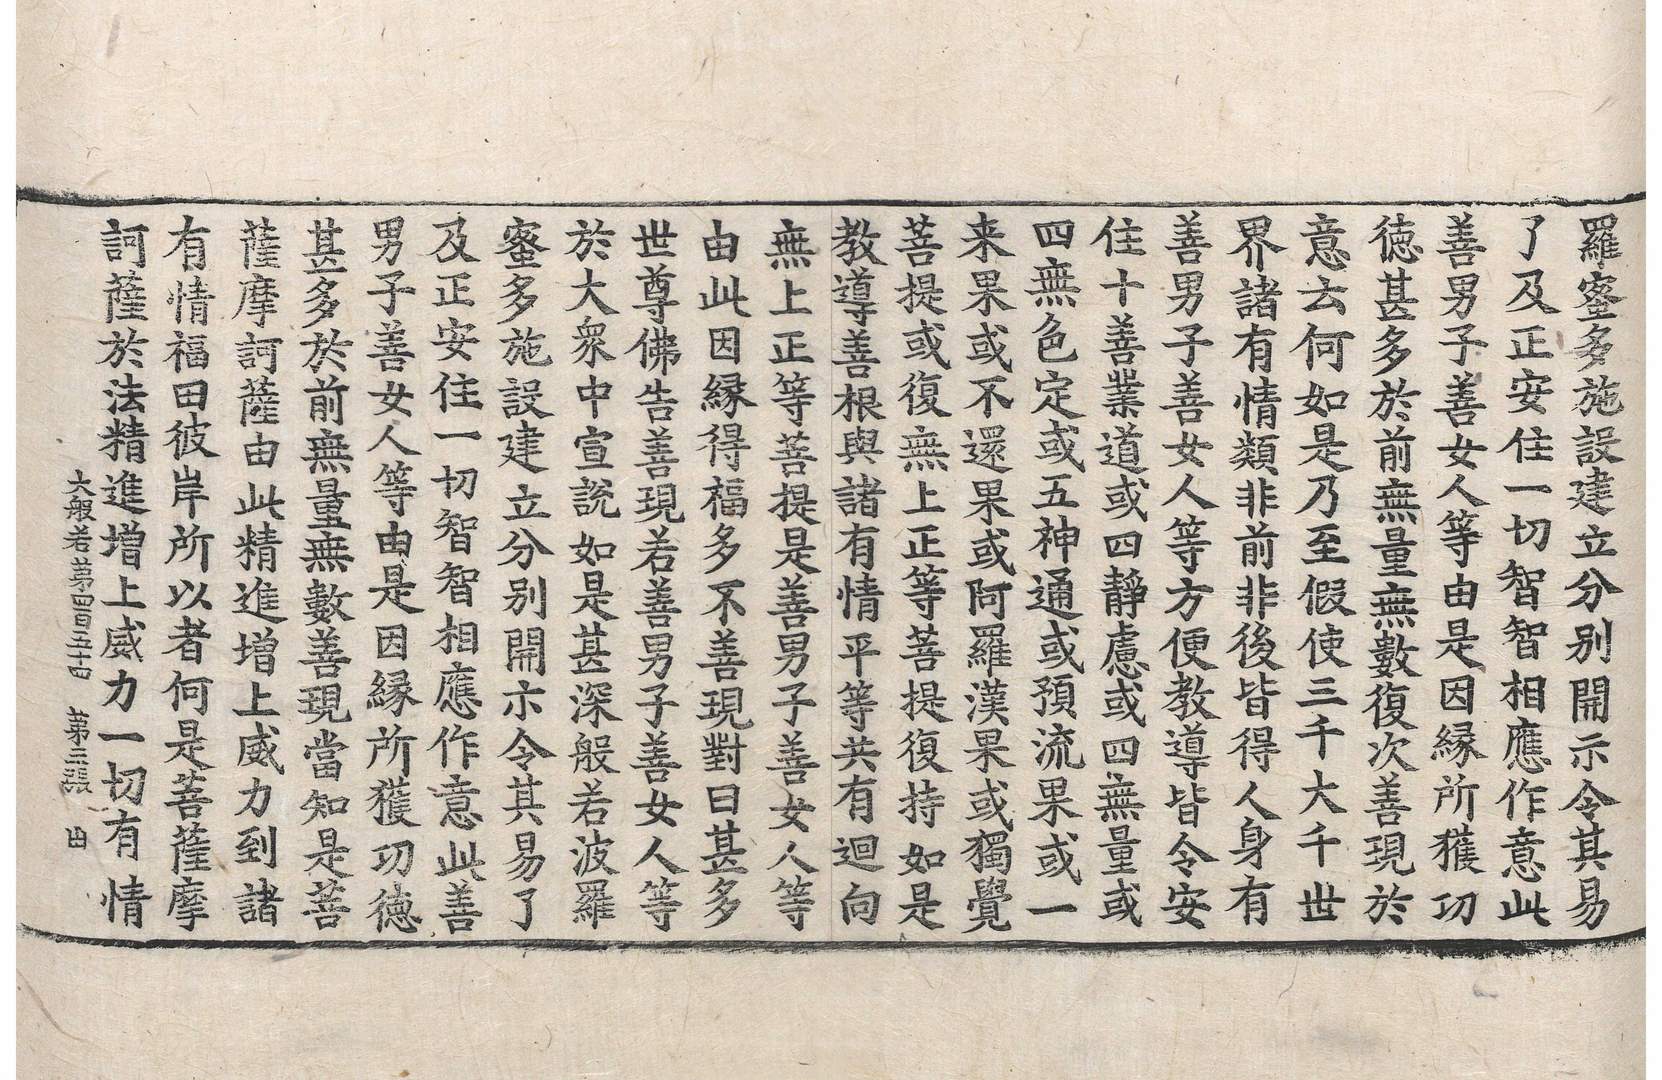 羅蜜多施設建立分別開示令其易
了及正安住一切智智相應作意此
善男子善女人等由是因縁所獲功
徳甚多於前無量無數復次善現於
意云何如是乃至假使三千大千世
界諸有情類非前非後皆得人身有
善男子善女人等方便教導皆令安
住十善業道或四靜慮或四無量或
四無色定或五神通或預流果或一
来果或不還果或阿羅漢果或獨覺
菩提或復無上正等菩提復持如是
教導善根與諸有情平等共有迴向
無上正等菩提是善男子善女人等
由此因縁得福多不善現對曰甚多
世尊佛告善現若善男子善女人等
於大衆中宣說如是甚深般若波羅
蜜多施設建立分別開示令其易了
及正安住一切智智相應作意此善
男子善女人等由是因縁所獲功徳
甚多於前無量無數善現當知是菩
薩摩訶薩由此精進増上威力到諸
有情福田彼岸所以者何是菩薩摩
訶薩於法精進増上威力一切有情
大般若第四百五十四 第三張 由